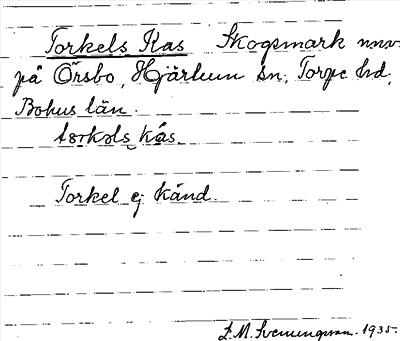 Torkels Kas Skogsmark nnv.
på Örsbo, Hjärtum sn, Torpe hd,
Bohus län.
tɔrkəls kás.
Torkel ej känd.
L.M. Svenungsson. 1935.